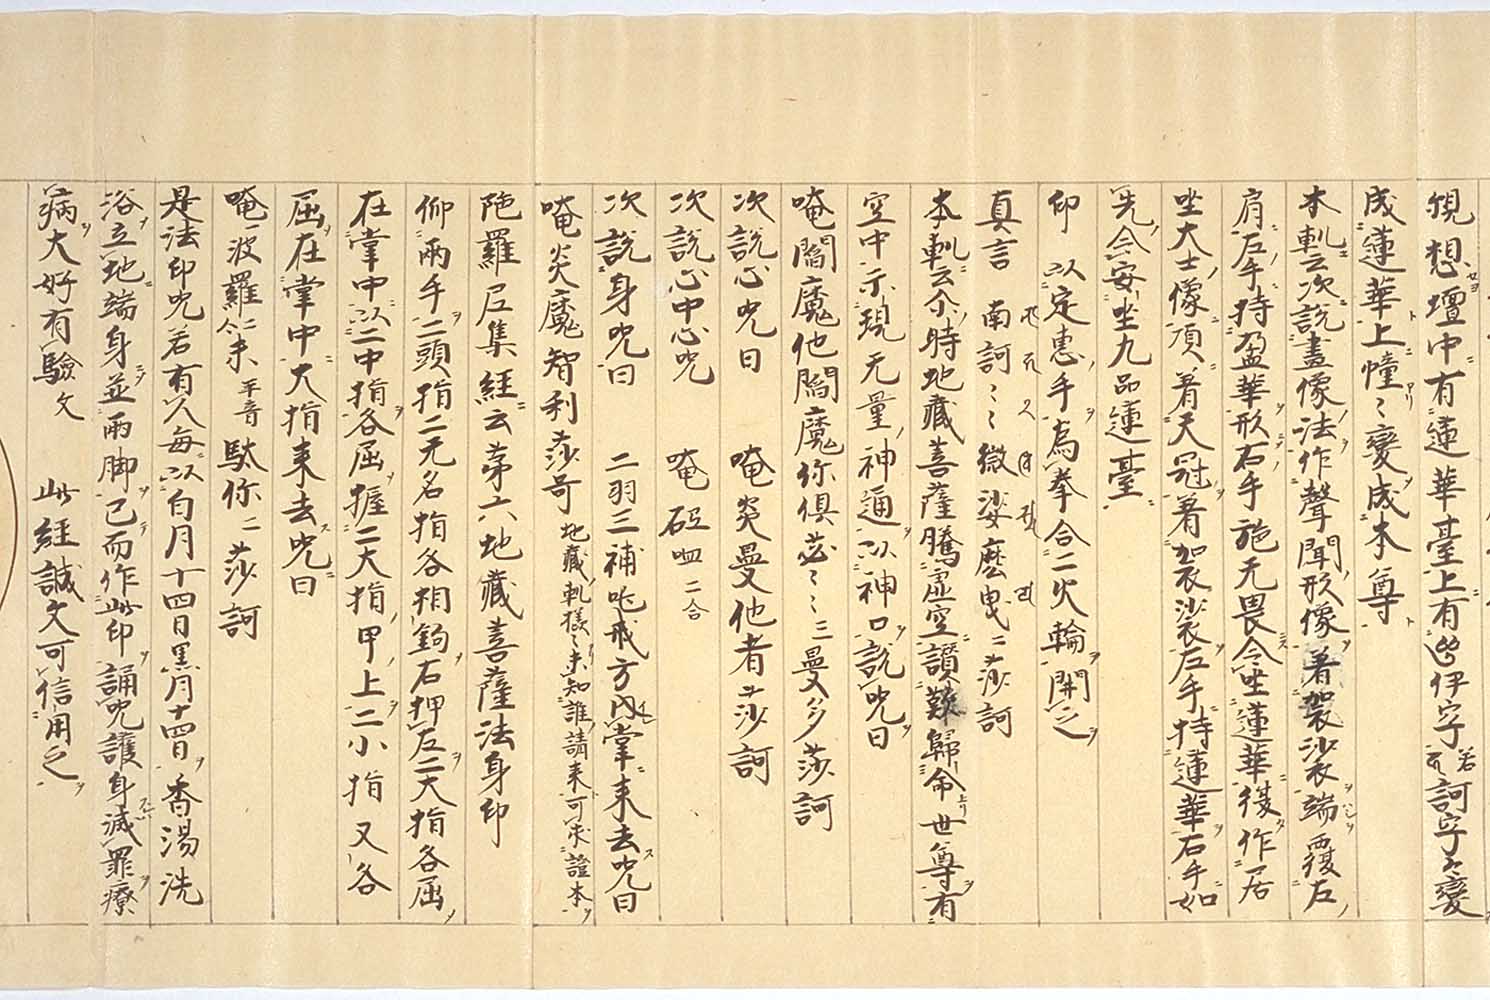 想壇中有蓮華臺上有伊字若訶字々變
成蓮華上幢〻變成本尊
本軌云次説畫像法作聲聞形像著袈裟端覆左
肩左手持盈華形右手施无畏令坐蓮華復作居
坐大士像頂著天冠著袈裟左手持蓮華右手如
先令安坐九品蓮臺
印 以定惠手為拳合二火輪開之
真言 南訶〻〻微娑麼曵二莎訶
本軌云尒時地藏菩薩騰虛空讚歎歸命世尊有
空中示現无量神通以神口説咒曰
唵閻魔他閻魔祢俱〻三曼多莎訶
次説心咒曰 唵炎曼他者莎訶
次説心中心咒 唵 二合
次説身咒曰 二羽三補吒戒方内掌来去咒曰
唵炎魔智利莎訶 地藏軌様〻未知誰請来可求證本
陁羅尼集經云苐六地藏菩薩法身印
仰兩手二頭指二无名指各相鉤右押左二大指各屈
在掌中以二中指各屈握二大指甲上二小指又各
屈在掌中大指来去咒曰
唵 波羅二合末平音馱你二莎訶
是法印咒若有人每以白月十四日黑月十四日香湯洗
浴立地端身並兩脚已而作此印誦咒護身滅罪療
病大好有驗文 此經誠文可信用之